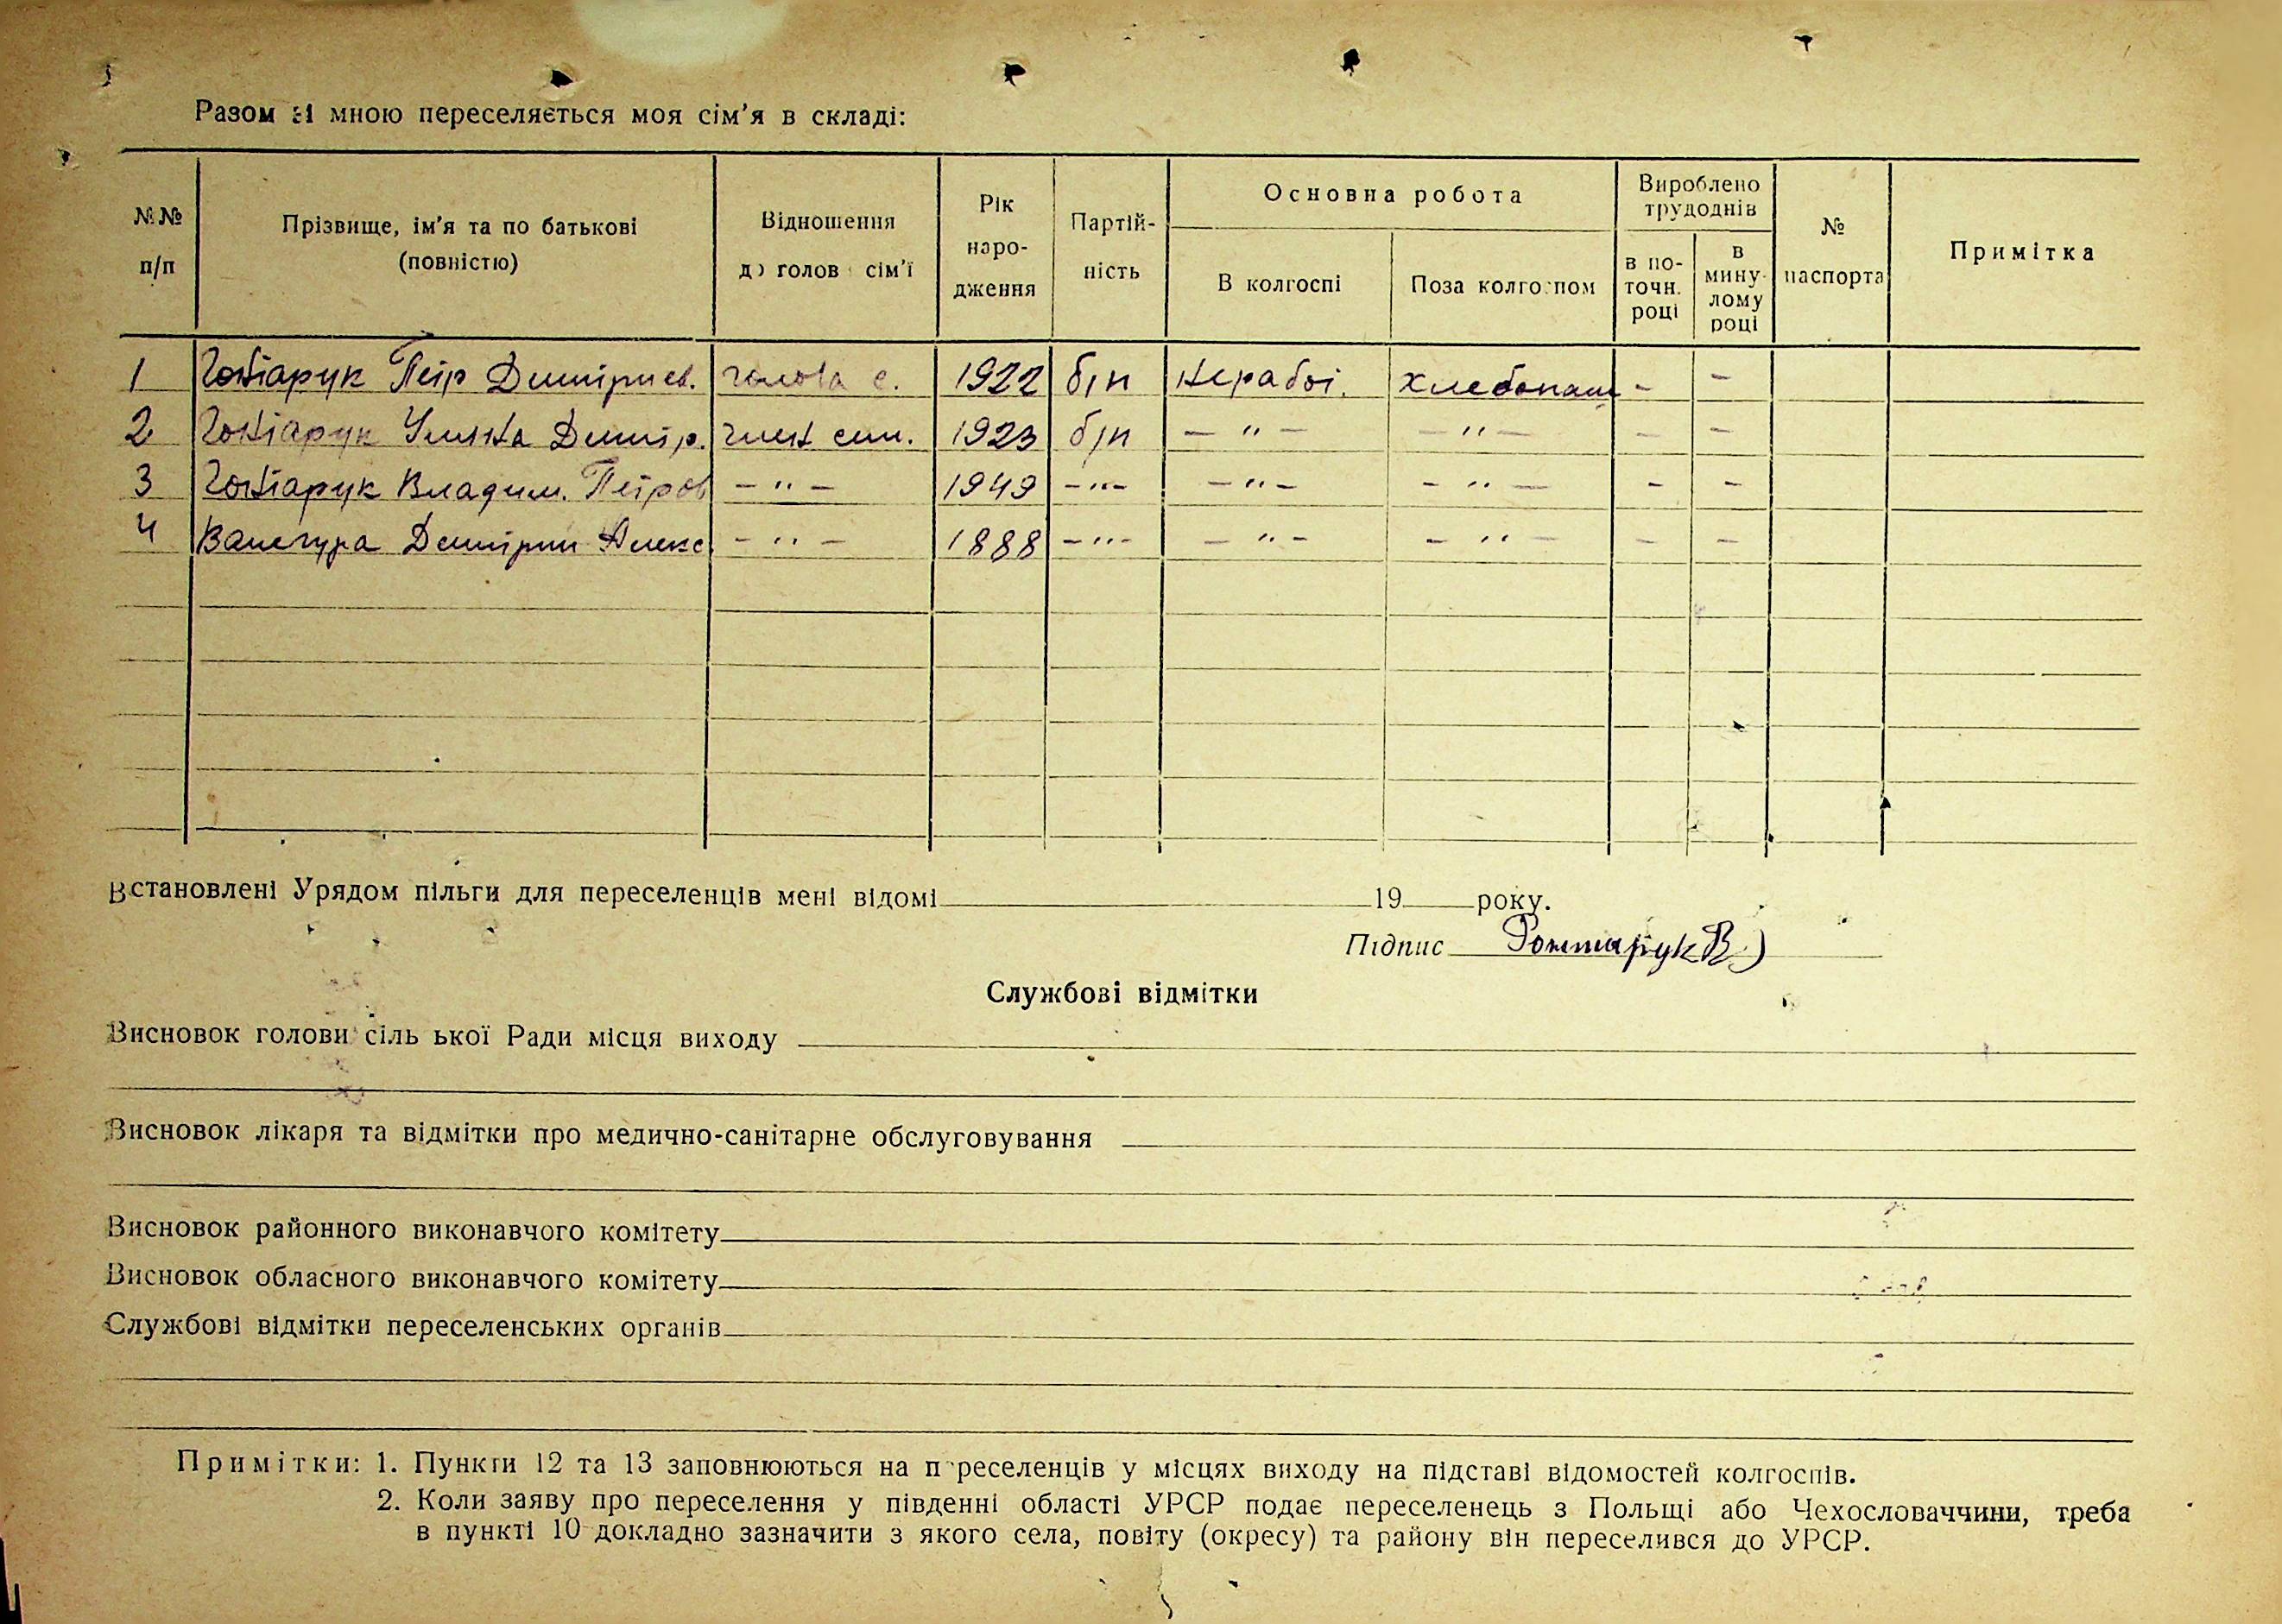 Разом зі мною переселяється моя сім'я в складі:
№№ п/п
Прізвище, ім'я та по батькові (повністю)
Відношення до голов сім'ї
Рік народження
Партійність
Основна робота
В колгоспі
Поза колгоспом
Вироблено трудоднів
в поточн. році
в минулому році
№ паспорта
Примітка
1 Гонтарук Петр Дмитриев. голова с. 1922 б/п неработ. хлебопаш - -
2 Гонтарук Улита Дмитр. член сем. 1923 б/п – " – – " – – –
3 Гонтарук Владим. Петров – " – 1949 – " – – " – – " – – –
4 Дмитрий Алекс – " – 1888 – " – – " – – " – – –
Встановлені Урядом пільги для переселенців мені відомі 19 року.
Підпис Гонтарук
Службові відмітки
Висновок голови сільської Ради місця виходу
Висновок лікаря та відмітки про медично-санітарне обслуговування
Висновок районного виконавчого комітету
Висновок обласного виконавчого комітету
Службові відмітки переселенських органів
Примітки: 1. Пункти 12 та 13 заповнюються на переселенців у місцях виходу на підставі відомостей колгоспів.
2. Коли заяву про переселення у південні області УРСР подає переселенець з Польщі або Чехословаччини, треба
в пункті 10 докладно зазначити з якого села, повіту (окресу) та району він переселився до УРСР.